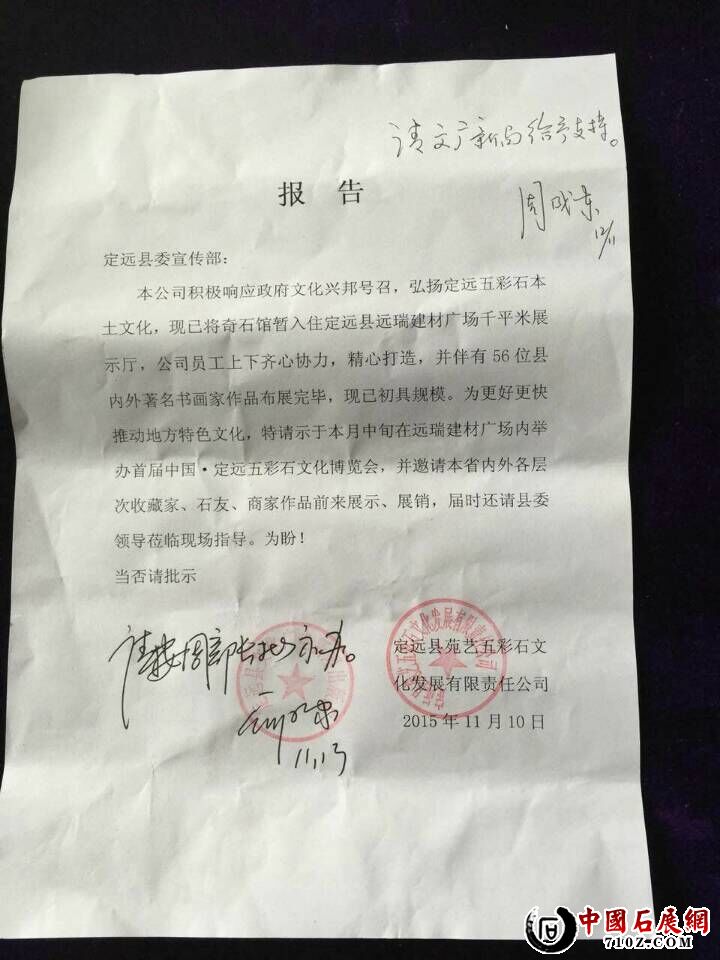 请文广新局给予支持。
周成东
12/11
报 告
定远县委宣传部：
本公司积极响应政府文化兴邦号召，弘扬定远五彩石本
土文化，现已将奇石馆暂入住定远县远瑞建材广场千平米展
示厅，公司员工上下齐心协力，精心打造，并伴有 56 位县
内外著名书画家作品布展完毕，现已初具规模。为更好更快
推动地方特色文化，特请示于本月中旬在远瑞建材广场内举
办首届中国·定远五彩石文化博览会，并邀请本省内外各层
次收藏家、石友、商家作品前来展示、展销，届时还请县委
领导莅临现场指导。为盼！
当否请批示
请按周部长批示办。
11.13
定远县苑艺五彩石文
化发展有限责任公司
2015 年 11 月 10 日
中國石展網
710Z.COM